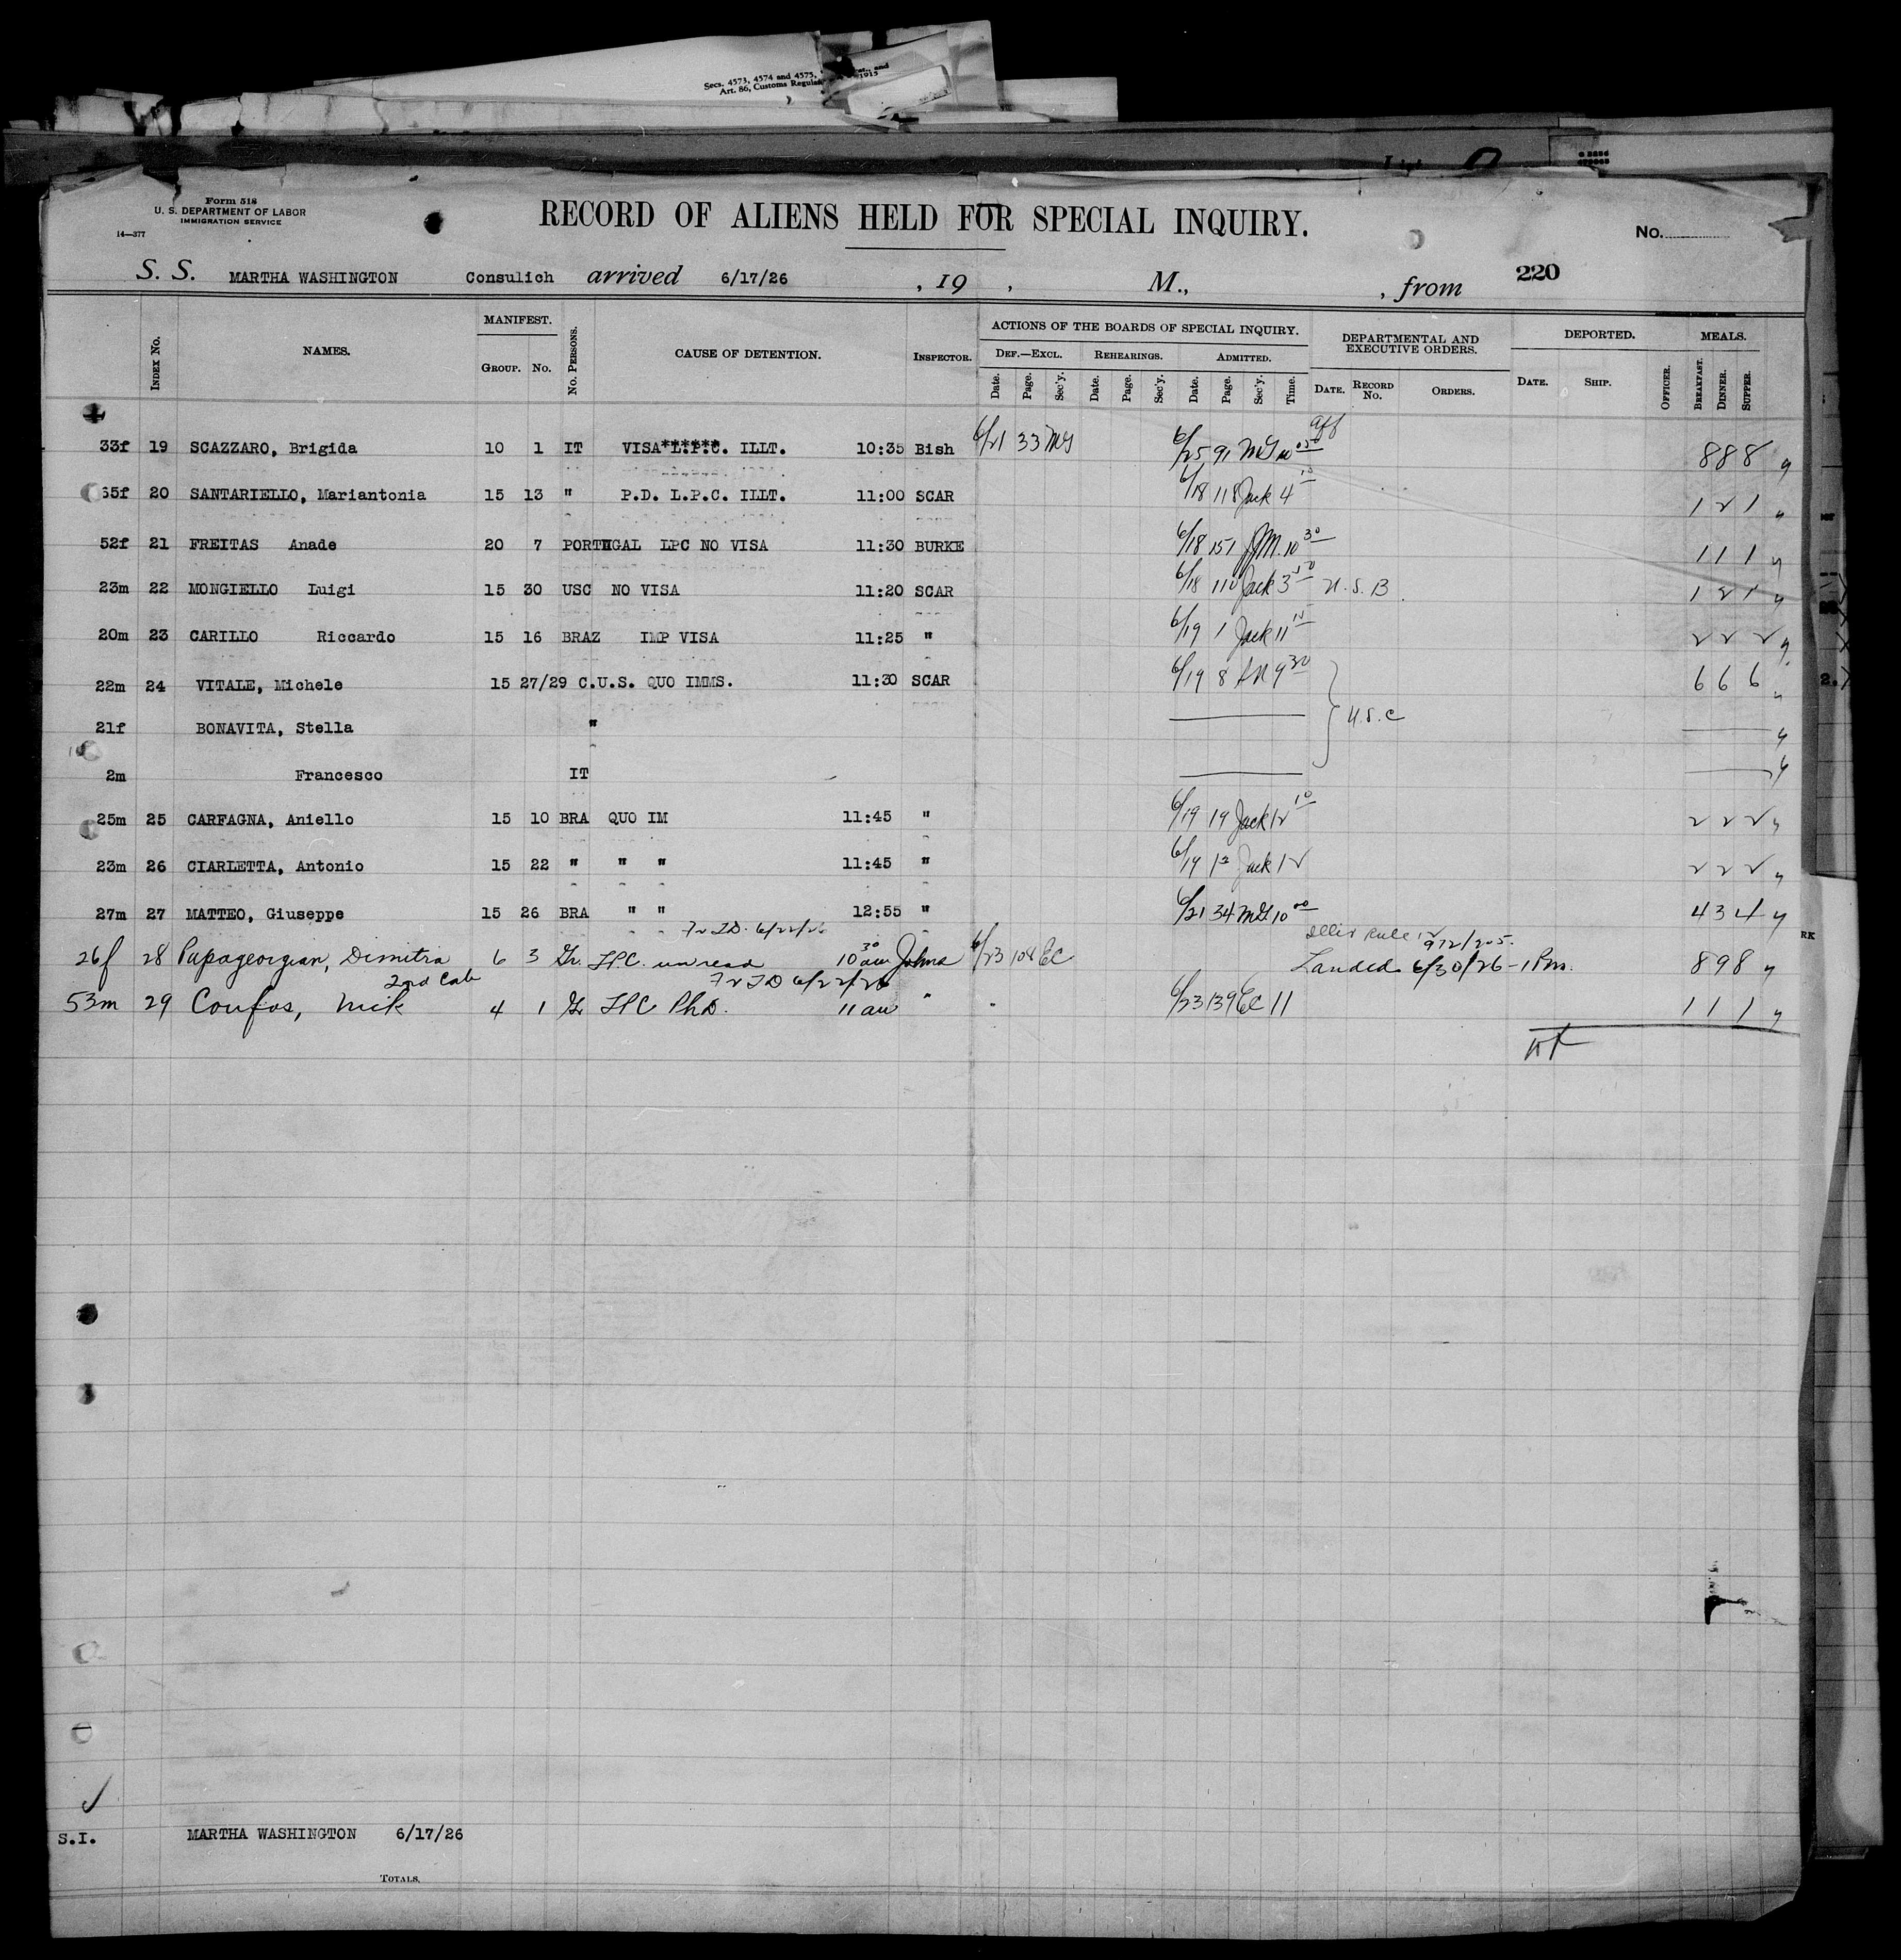 Secs. 4573, 4574 and 4575,
Art. 86, Customs
Form 518
U. S. DEPARTMENT OF LABOR
IMMIGRATION SERVICE
14—377
RECORD OF ALIENS HELD FOR SPECIAL INQUIRY.
No.
S. S. MARTHA WASHINGTON Consulich arrived 6/17/26 , 19 , M., , from 220
INDEX No. NAMES. MANIFEST. GROUP. No. No. PERSONS. CAUSE OF DETENTION. INSPECTOR. ACTIONS OF THE BOARDS OF SPECIAL INQUIRY. DEPARTMENTAL AND EXECUTIVE ORDERS. DEPORTED. MEALS.
DEF.—EXCL. REHEARINGS. ADMITTED.
Date. Page. Sec'y. Date. Page. Sec'y. Date. Page. Sec'y. Time. DATE. RECORD No. ORDERS. DATE. SHIP. OFFICER. BREAKFAST. DINNER. SUPPER.
33f 19 SCAZZARO, Brigida 10 1 IT VISA****** L.P.C. ILLT. 10:35 Bish 6/21 33 MG 6/25 91 MG 10 aff 8 8 8
65f 20 SANTARIELLO, Mariantonia 15 13 " P.D. L.P.C. ILLT. 11:00 SCAR 6/18 118 Jack 4 1 2 1
52f 21 FREITAS Anade 20 7 PORTUGAL LPC NO VISA 11:30 BURKE 6/18 151 JJM. 10 30 1 1 1
23m 22 MONGIELLO Luigi 15 30 USC NO VISA 11:20 SCAR 6/18 110 Jack 3 50 U.S.B. 1 2 1
20m 23 CARILLO Riccardo 15 16 BRAZ IMP VISA 11:25 " 6/19 1 Jack 11 15 2 2 2
22m 24 VITALE, Michele 15 27/29 C.U.S. QUO IMMS. 11:30 SCAR 6/19 8 9 30 6 6 6
21f BONAVITA, Stella " U.S.C
2m Francesco IT
25m 25 CARFAGNA, Aniello 15 10 BRA QUO IM 11:45 " 6/19 19 Jack 12 10 2 2 2
23m 26 CIARLETTA, Antonio 15 22 " " " 11:45 " 6/19 12 Jack 12 2 2 2
27m 27 MATTEO, Giuseppe 15 26 BRA " " 12:55 " 6/21 34 MG. 10 00 4 3 4
Fr TD. 6/22/26
26f 28 Papageorgian, Dimitra 6 3 Gr. LPC. unread 10 30 am Johns 6/23 108 EC Landed 6/30/26 - 1 Pm. 8 9 8
2nd Cab Fr TD 6/22/26
53m 29 Coufos, Nick 4 1 Gr LPC Ph.D. 11 am " 6/23 139 EC 11 1 1 1
S.I. MARTHA WASHINGTON 6/17/26
TOTALS.